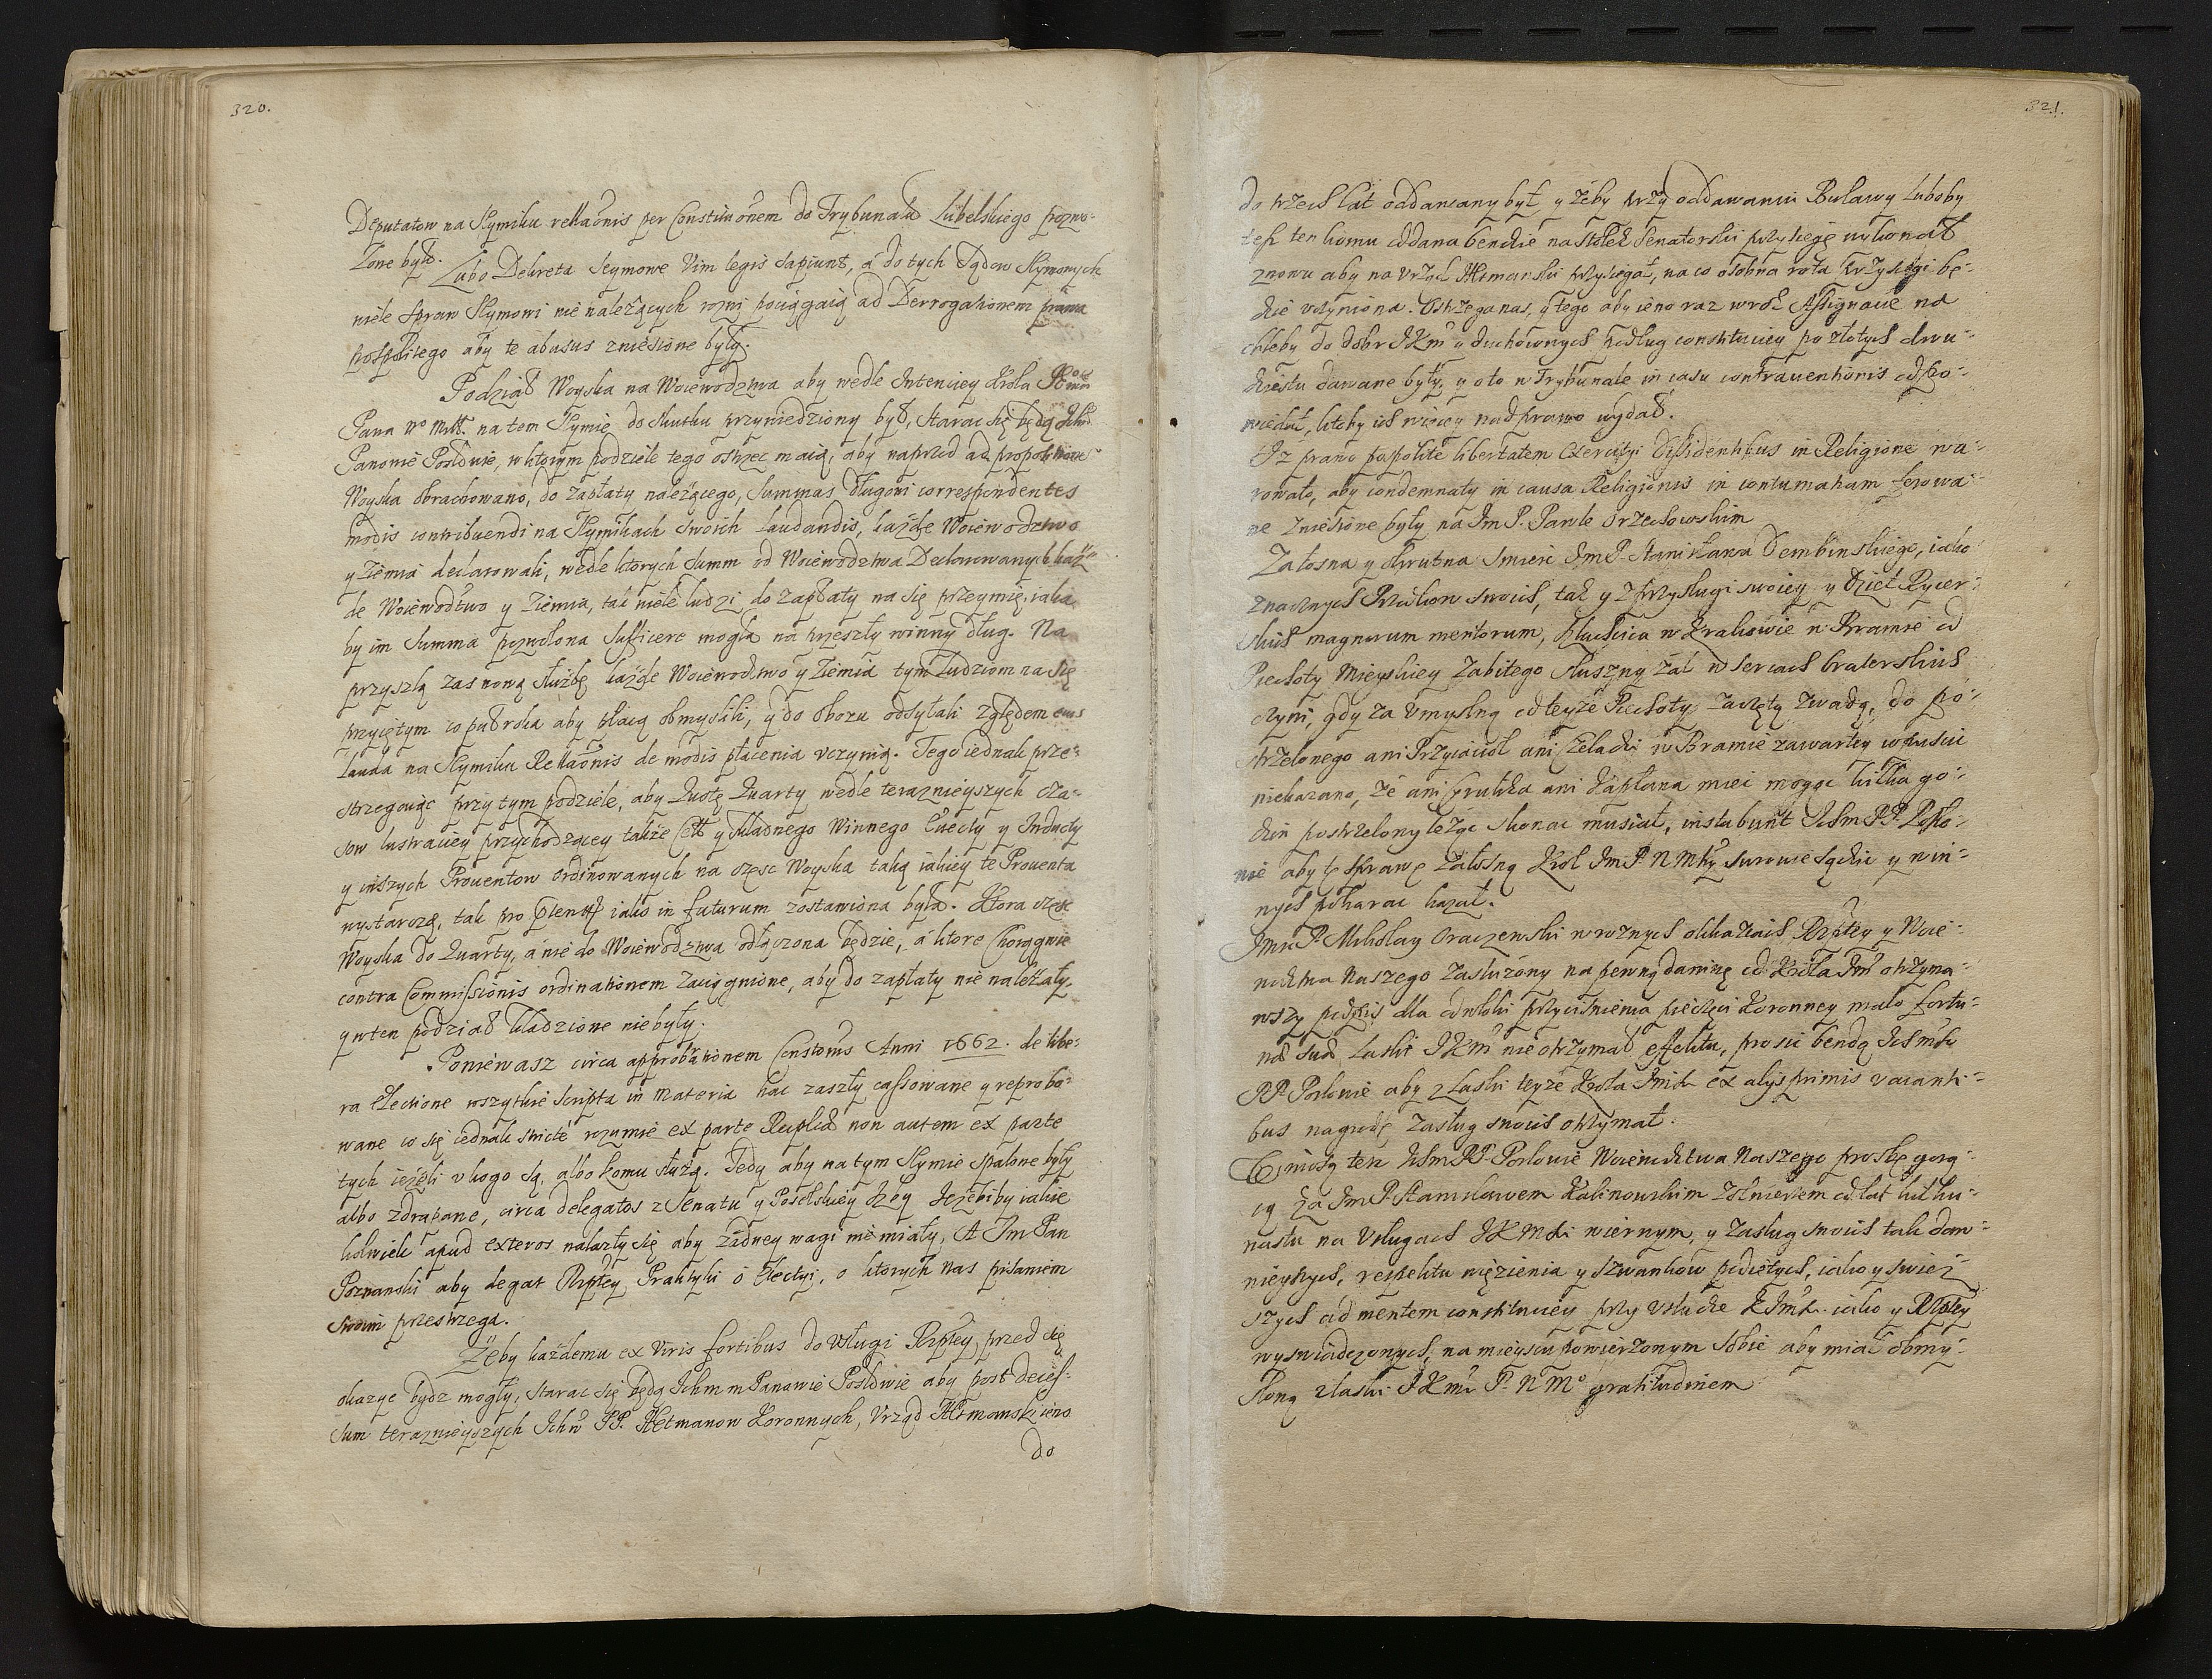 320.
Deputatow na Seymiku rellaōnis per Constituōnem do Trybunału Lubelskiego pozwo-
lone było.
Lubo Dekreta Seymowe Vim legis sapiunt, á do tych Sądow Seymowych
wiele spraw Seymowi nie należących rożni pociągaią ad Derrogationem prawa
pospolitego aby te abusus zniesione były.
Podział Woyska na Woiewodztwa aby wedle Intenciey Krola
Pana No Młł. na tem Seymie do skutku przywiedziony był, starac się będą Ichm
Panowie Posłowie, w ktorym podziele tego ostrzec maią, aby naprzod ad proportionem
Woyska obrachowano, do zapłaty należącego, summas długowi correspondentes
modis contribuendi na Seymikach swoich laudandis, każde Woiewodztwo
y Ziemia declarowali, wedle ktorych summ od Woiewodztwa Declarowanych każ-
de Woiewodztwo y Ziemia, tak wiele ludzi do zapłaty na się przeymie, iaka
by im summa pozwolona sufficere mogła na przeszły winny dług. Na
przyszłą zas nową służbę każde Woiewodztwo y Ziemia tym Ludziom na się
przyiętym co puł roka aby płacą obmyslili, y do obozu odsyłali względem czego
lauda na Seymiku Rellaōnis de modis płacenia uczynią. Tego iednak prze-
strzegaiąc przy tym podziele, aby kwotę kwarty wedle teraznieyszych cza-
sow lustraciey przychodzącey także Cłł y składnego Winnego Evecty y Inducty
y inszych Prouentow ordinowanych na częsc Woyska taką iakiey te Prouenta
wystarczą, tak pro iako in futurum zostawiona była. Ktora częsc
Woyska do kwarty, á nie do Woiewodztwa odłączona będzie, á ktore Chorągwie
contra Commissionis ordinationem zaciągnione, aby do zapłaty nie należały,
y w ten podział kładzione nie były.
Poniewasz circa approbationem Constōnis Anni 1662. de libe-
ra Electione wszytkie scripta in materia hac zaszły cassowane y reproba-
wane co się iednak stricte rozumie ex parte Reiplcæ non autem ex parte
tych ieżeli u kogo są, albo komu służą. Tedy aby na tym Seymie spalone były
albo zdrapane, circa delegatos z Senatu y Poselskiey Izby Ieżeliby iakie
kolwiek apud exteros nalazły się aby żadney wagi nie miały, A Im Pan
Poznanski aby legat Rzptey Praktyki o Electyi, o ktorych nas pisaniem
swoim przestrzega.
Żeby każdemu ex Viris fortibus do usługi Rzptey przed się
okazye bydz mogły, starac się będą Ichm m Panowie Posłowie aby post deces-
sum teraznieyszych Ichm PP. Hetmanow Koronnych, Vrząd Hetmanski ieno
do
321.
do trzech lat oddawany był y żeby przy oddawaniu Buławy luboby
tesz ten komu oddana bendzie na Stołek Senatorski przysięgę wykonał
znowu aby na urząd Hetmanski przysięgał, na co osobna rota przysięgi bę-
dzie uczyniona. Ostrzega nas, y tego aby ieno raz w rok Assignacie na
chleby do dobr JKm y duchownych podług constituciey po złotych dwu-
dziestu dawane były, y o to w Trybunale in casu contrauentionis odpo-
wiedał, ktoby ich więcey nad prawo wydał.
Iż prawo pospolite libertatem exercitii Dissidentibus in Religione wa-
rowało, aby condemnaty in causa Religionis in contumatiam ferowa-
ne zniesione były na Im P. Pawle Orzechowskim
Załosna y okrutna smierc Im P. Stanisława Dembinskiego, iako
znacznych Przodkow swoich, tak y z przysługi swoiey y Dzieł Rycer-
skich magnorum meritorum, szlachcica w Krakowie w Bramie od
Piechoty Mieyskiey zabitego słuszny żal w sercach braterskich
czyni, gdy za umyslną od teyże Piechoty zaczętą zwadą, do po-
strzelonego ani Przyiacioł ani czeladzi w Bramie zawartey wpuscic
niekazano, że ani Cyrulika ani Kapłana miec mogąc kilka go-
dzin postrzelony leżąc skonac musiał, instabunt Ichm PP. Posło-
wie aby tę sprawę żałosną Krol Im P. N Mscy surowie sądził y win-
nych pokarac kazał.
Imci P. Mikołay Oraczewski w rożnych okkaziach Rzptey y Woie-
wodztwa Naszego zasłużony na pewną daninę od Krola Im otrzyma-
wszy podpis dla odwłoki przycisnienia pieczęci Koronney mało fortu-
næ suæ Łaski JKm nie otrzymał effektu, prosić bendą Ichmsc
PP. Posłowie aby z łaski teyże Krola Imsci ex aliis primis vacanti-
bus nagrodę zasług swoich otrzymał.
Wniosą też Ichm PP. Posłowie Woiewodztwa Naszego prosbę gorą-
cą za Im P Stanisławem Kalinowskim żołnierzem od lat kilku-
nastu na Usługach JKMsci wiernym, y zasług swoich tak daw-
nieyszych, respektu więzienia y szwankow podiętych, iako y swież-
szych ad mentem constituciey przy usłudze KIms. iako y Rzptey
wyswiadczonych, na mieyscu powierzonym sobie aby miał obmy-
sloną z łaski JKm P. N Mo gratitudinem